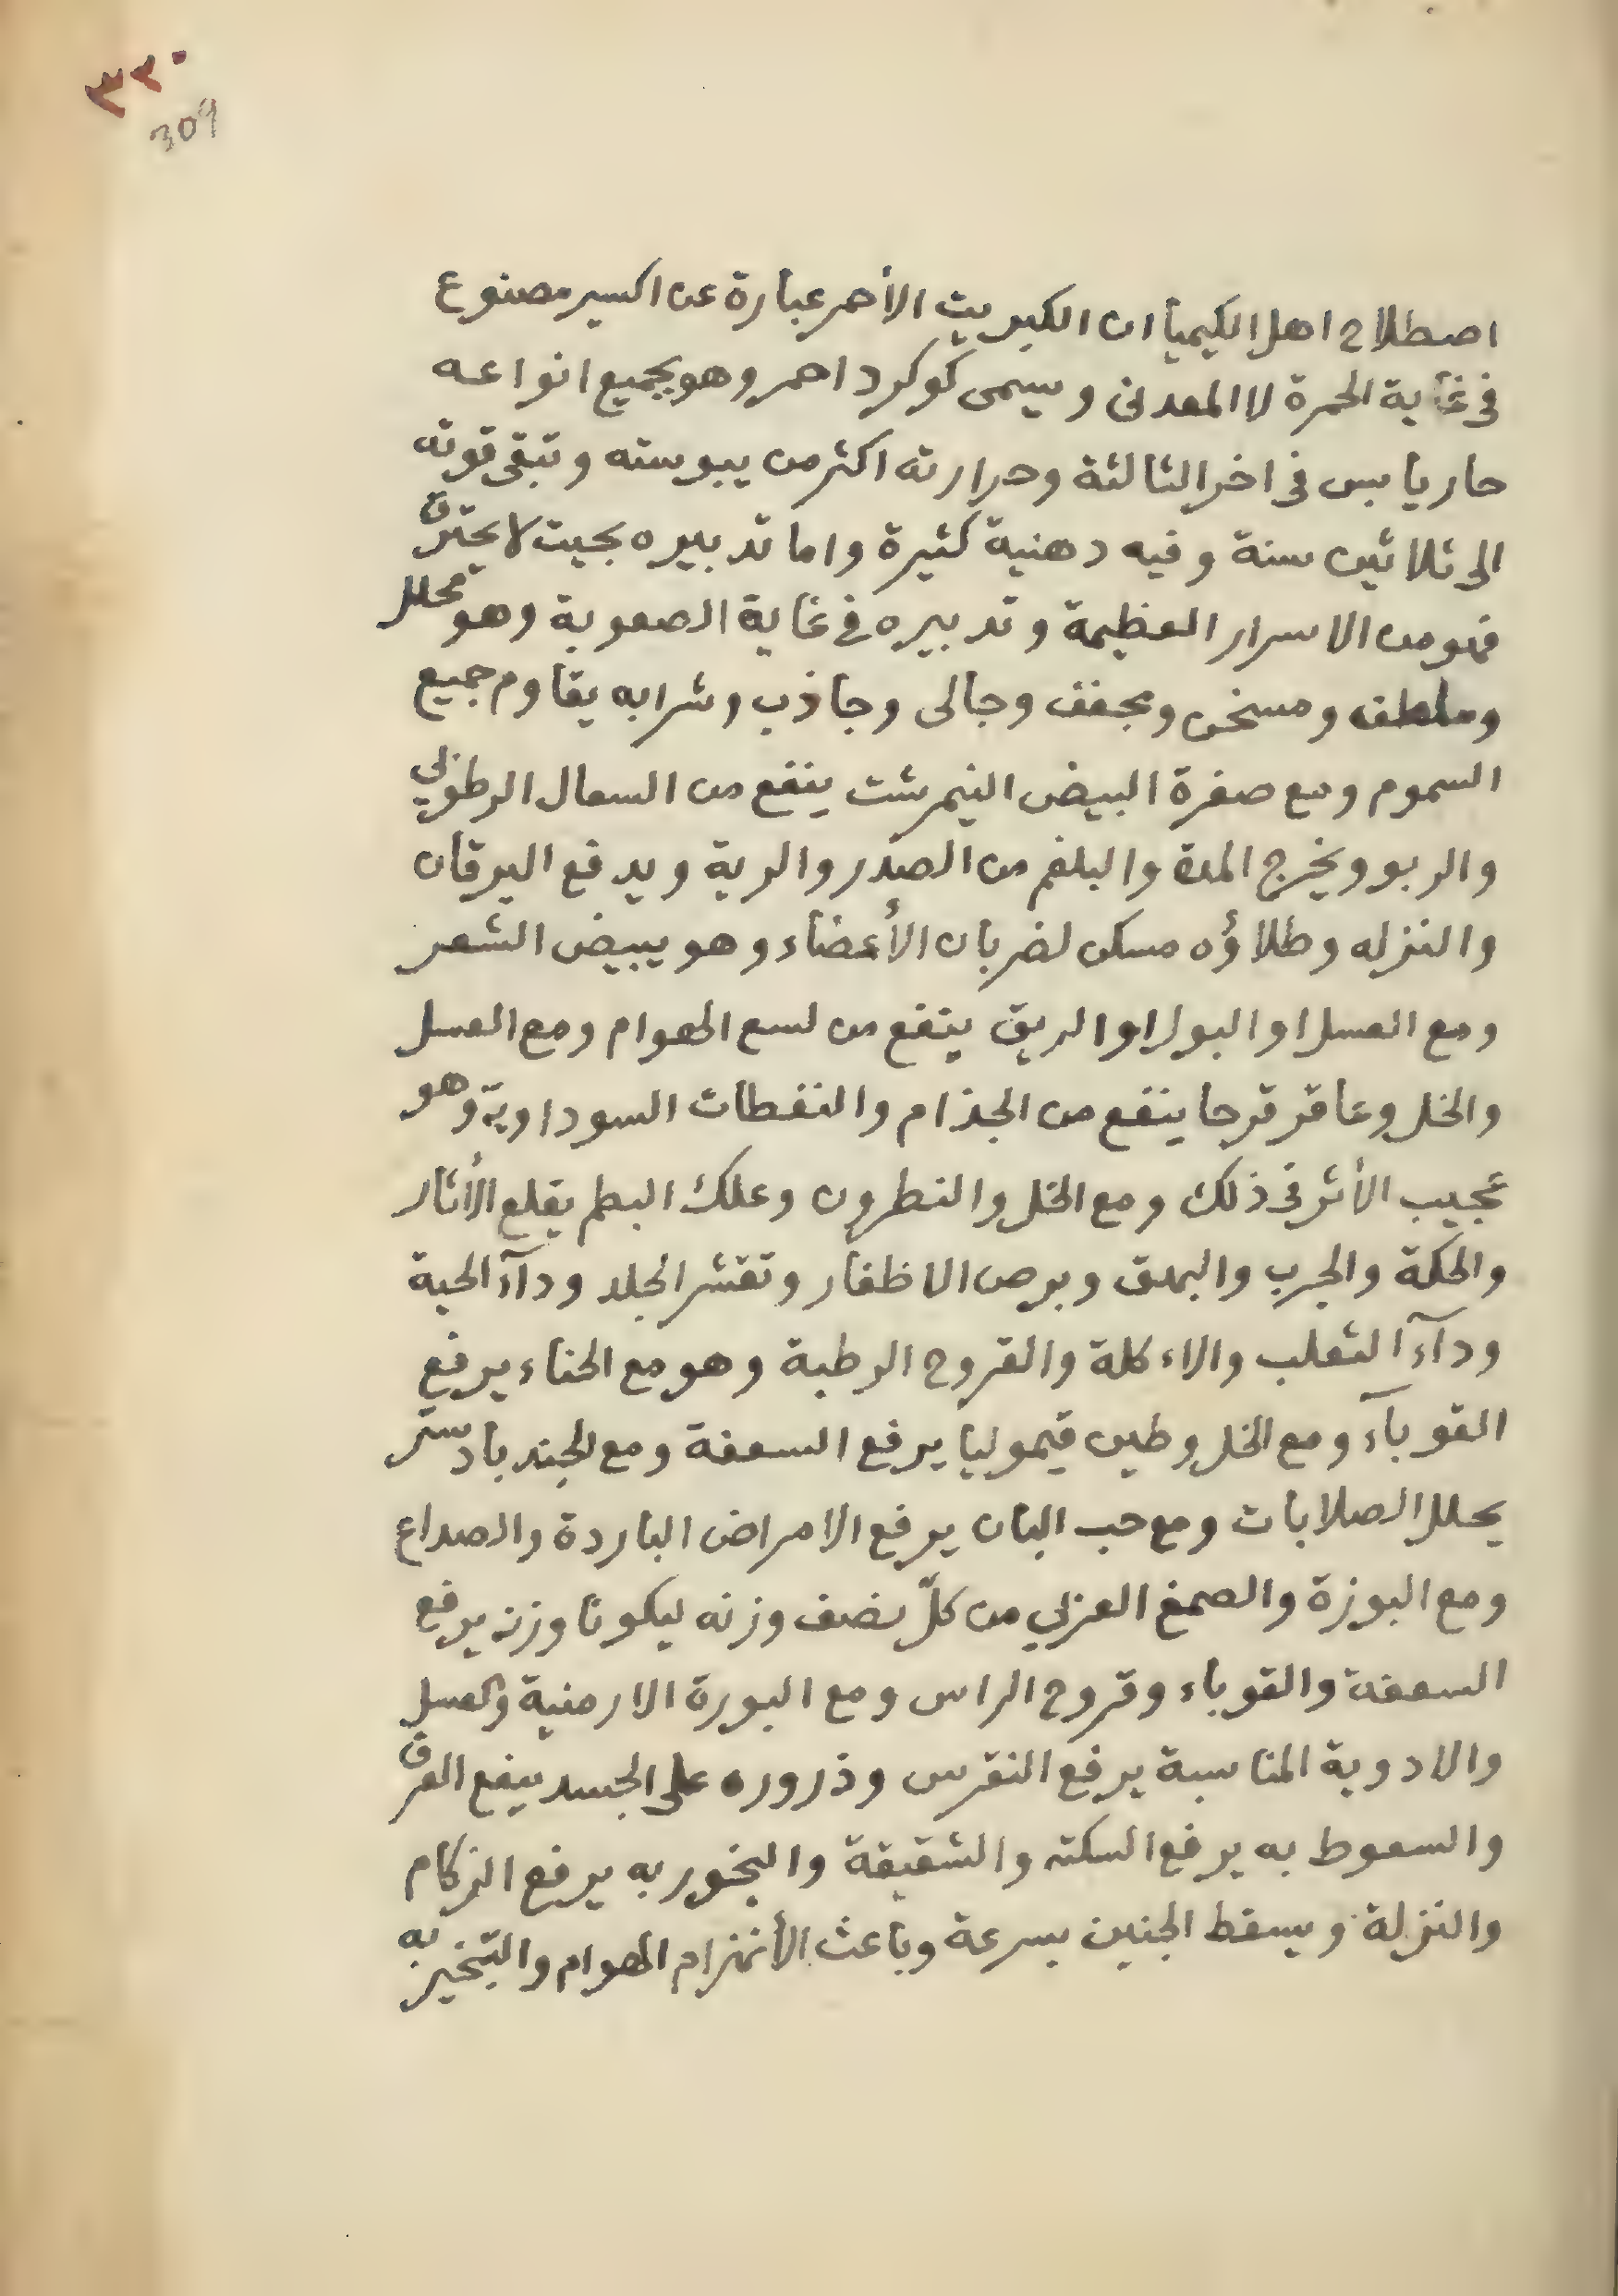 ٣٢٠
309
اصطلاح اهل الكيميا ان الكبريت الأحمر عبارة عن اكسير مصنوع
فى غاية الحمرة لا المعدنى ويسمى كوكرد احمر وهو بجميع انواعه
حار يابس فى اخر الثالثة وحرارته اكثر من يبوسته وتبقى قوته
الى ثلاثين سنة وفيه دهنية كثيرة واما تدبيره بحيث لا يحترق
فهو من الاسرار العظيمة وتدبيره فى غاية الصعوبة وهو محلل
وملطف ومسخن ومجفف وجالى وجاذب وشرابه يقاوم جميع
السموم ومع صفرة البيض النيمرشت ينفع من السعال الرطوبي
والربو ويخرج المدة والبلغم من الصدر والرية ويدفع اليرقان
والنزله وطلاؤه مسكن لضربان الأعضاء وهو يبيض الشعر
ومع العسل او البول او الريق ينفع من لسع الهوام ومع العسل
والخل وعاقر قرحا ينفع من الجذام والنفطات السوداوية وهو
عجيب الأثر فى ذلك ومع الخل والنطرون وعلك البطم يقلع الأثار
والحكة والجرب والبهق وبرص الاظفار وتقشر الجلد ودآء الحية
ودآء الثعلب والاءكلة والقروح الرطبة وهو مع الحناء يرفع
القوبآء ومع الخل وطين قيموليا يرفع السعفة ومع الجند بادستر
يحلل الصلابات ومع حب البان يرفع الامراض الباردة والصداع
ومع البوزة والصمغ العربي من كلّ نصف وزنه ليكونا وزنه يرفع
السعفة والقوباء وقروح الراس ومع البورة الارمنية والعسل
والادوية المناسبة يرفع النقرس وذروره على الجسد ينفع العرق
والسعوط به يرفع السكته والشقيقة والبخور به يرفع الزكام
والنزلة ويسقط الجنين بسرعة وباعث الأنهزام الهوام والتبخير به